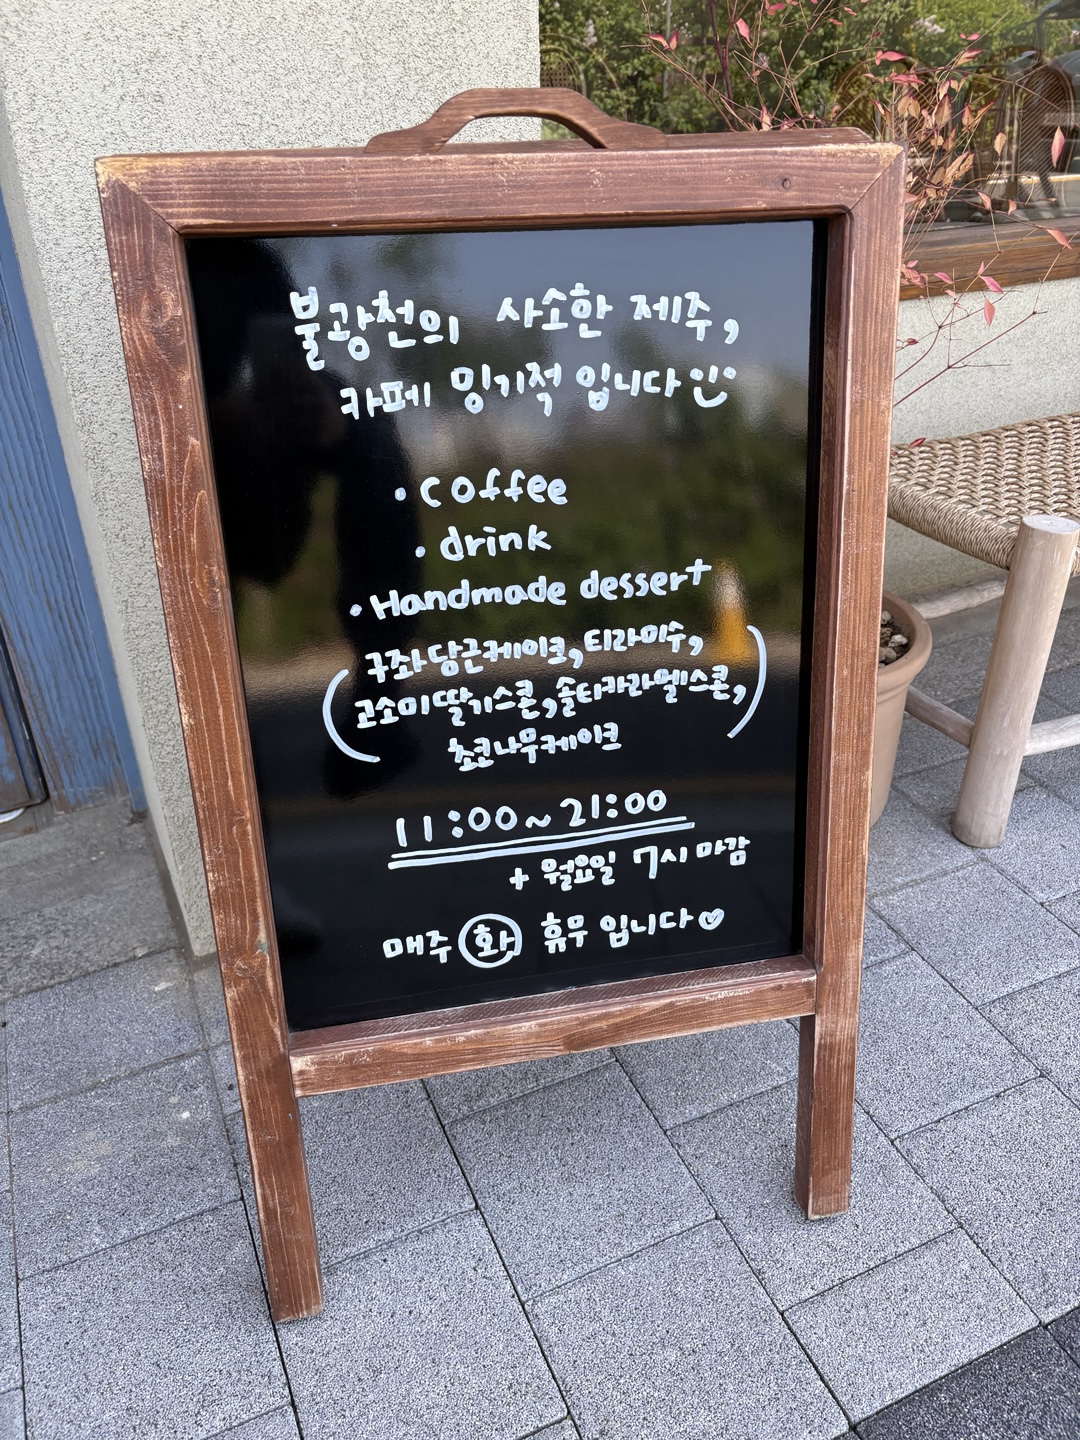 불광천의 사소한 제주,
카페 밍기적 입니다
· coffee
· drink
· Handmade dessert
(구좌당근케이크, 티라미수,
고소미딸기스콘, 솔티카라멜스콘,
초코나무케이크)
11:00~21:00
+ 월요일 7시 마감
매주 화 휴무 입니다♡